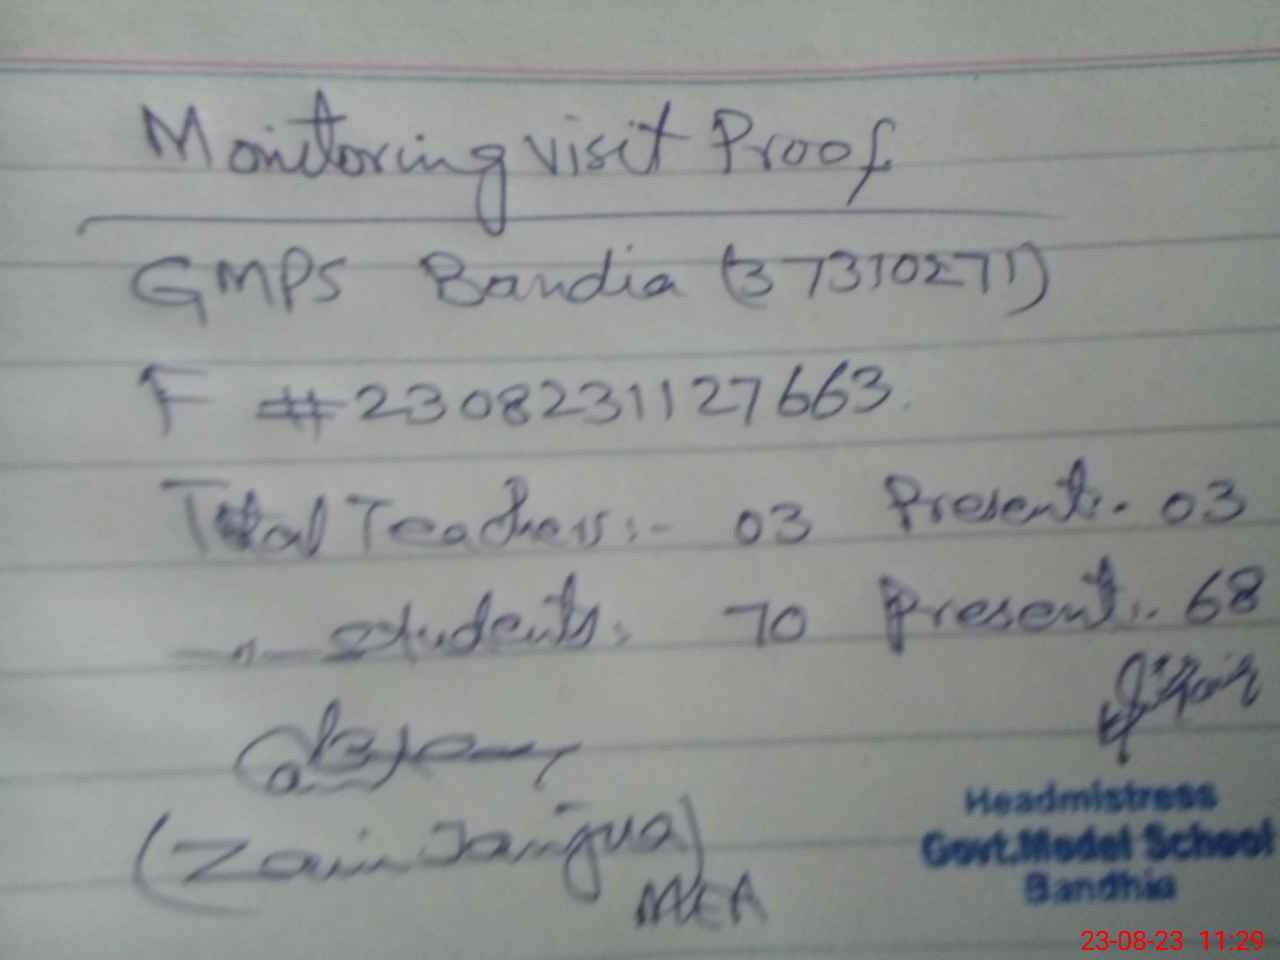 Monitoring visit Proof
GMPS Bandia (37310271)
F # 2308231127663.
Total Teachers:- 03 Present:- 03
—"— Students: 70 Present:. 68
(Zain Janjua)
MEA
Headmistress
Govt.Model School
Bandhia
23-08-23 11:29